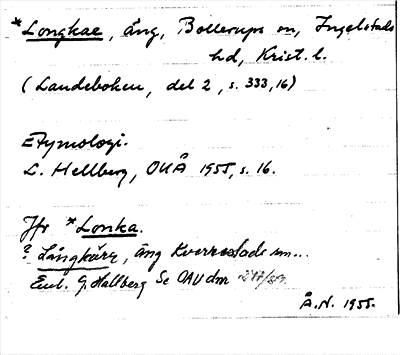 *Longkae, äng, Bollerups sn, Ingelstads
hd, Krist. l.
(Landeboken, del 2, s. 333,16)
Etymologi.
L. Hellberg, OUÅ 1955, s. 16.
Jfr *Lonka.
? Långkärr, äng Kverrestads sn...
Enl. G. Hallberg Se OAU dnr
Å.N. 1955.